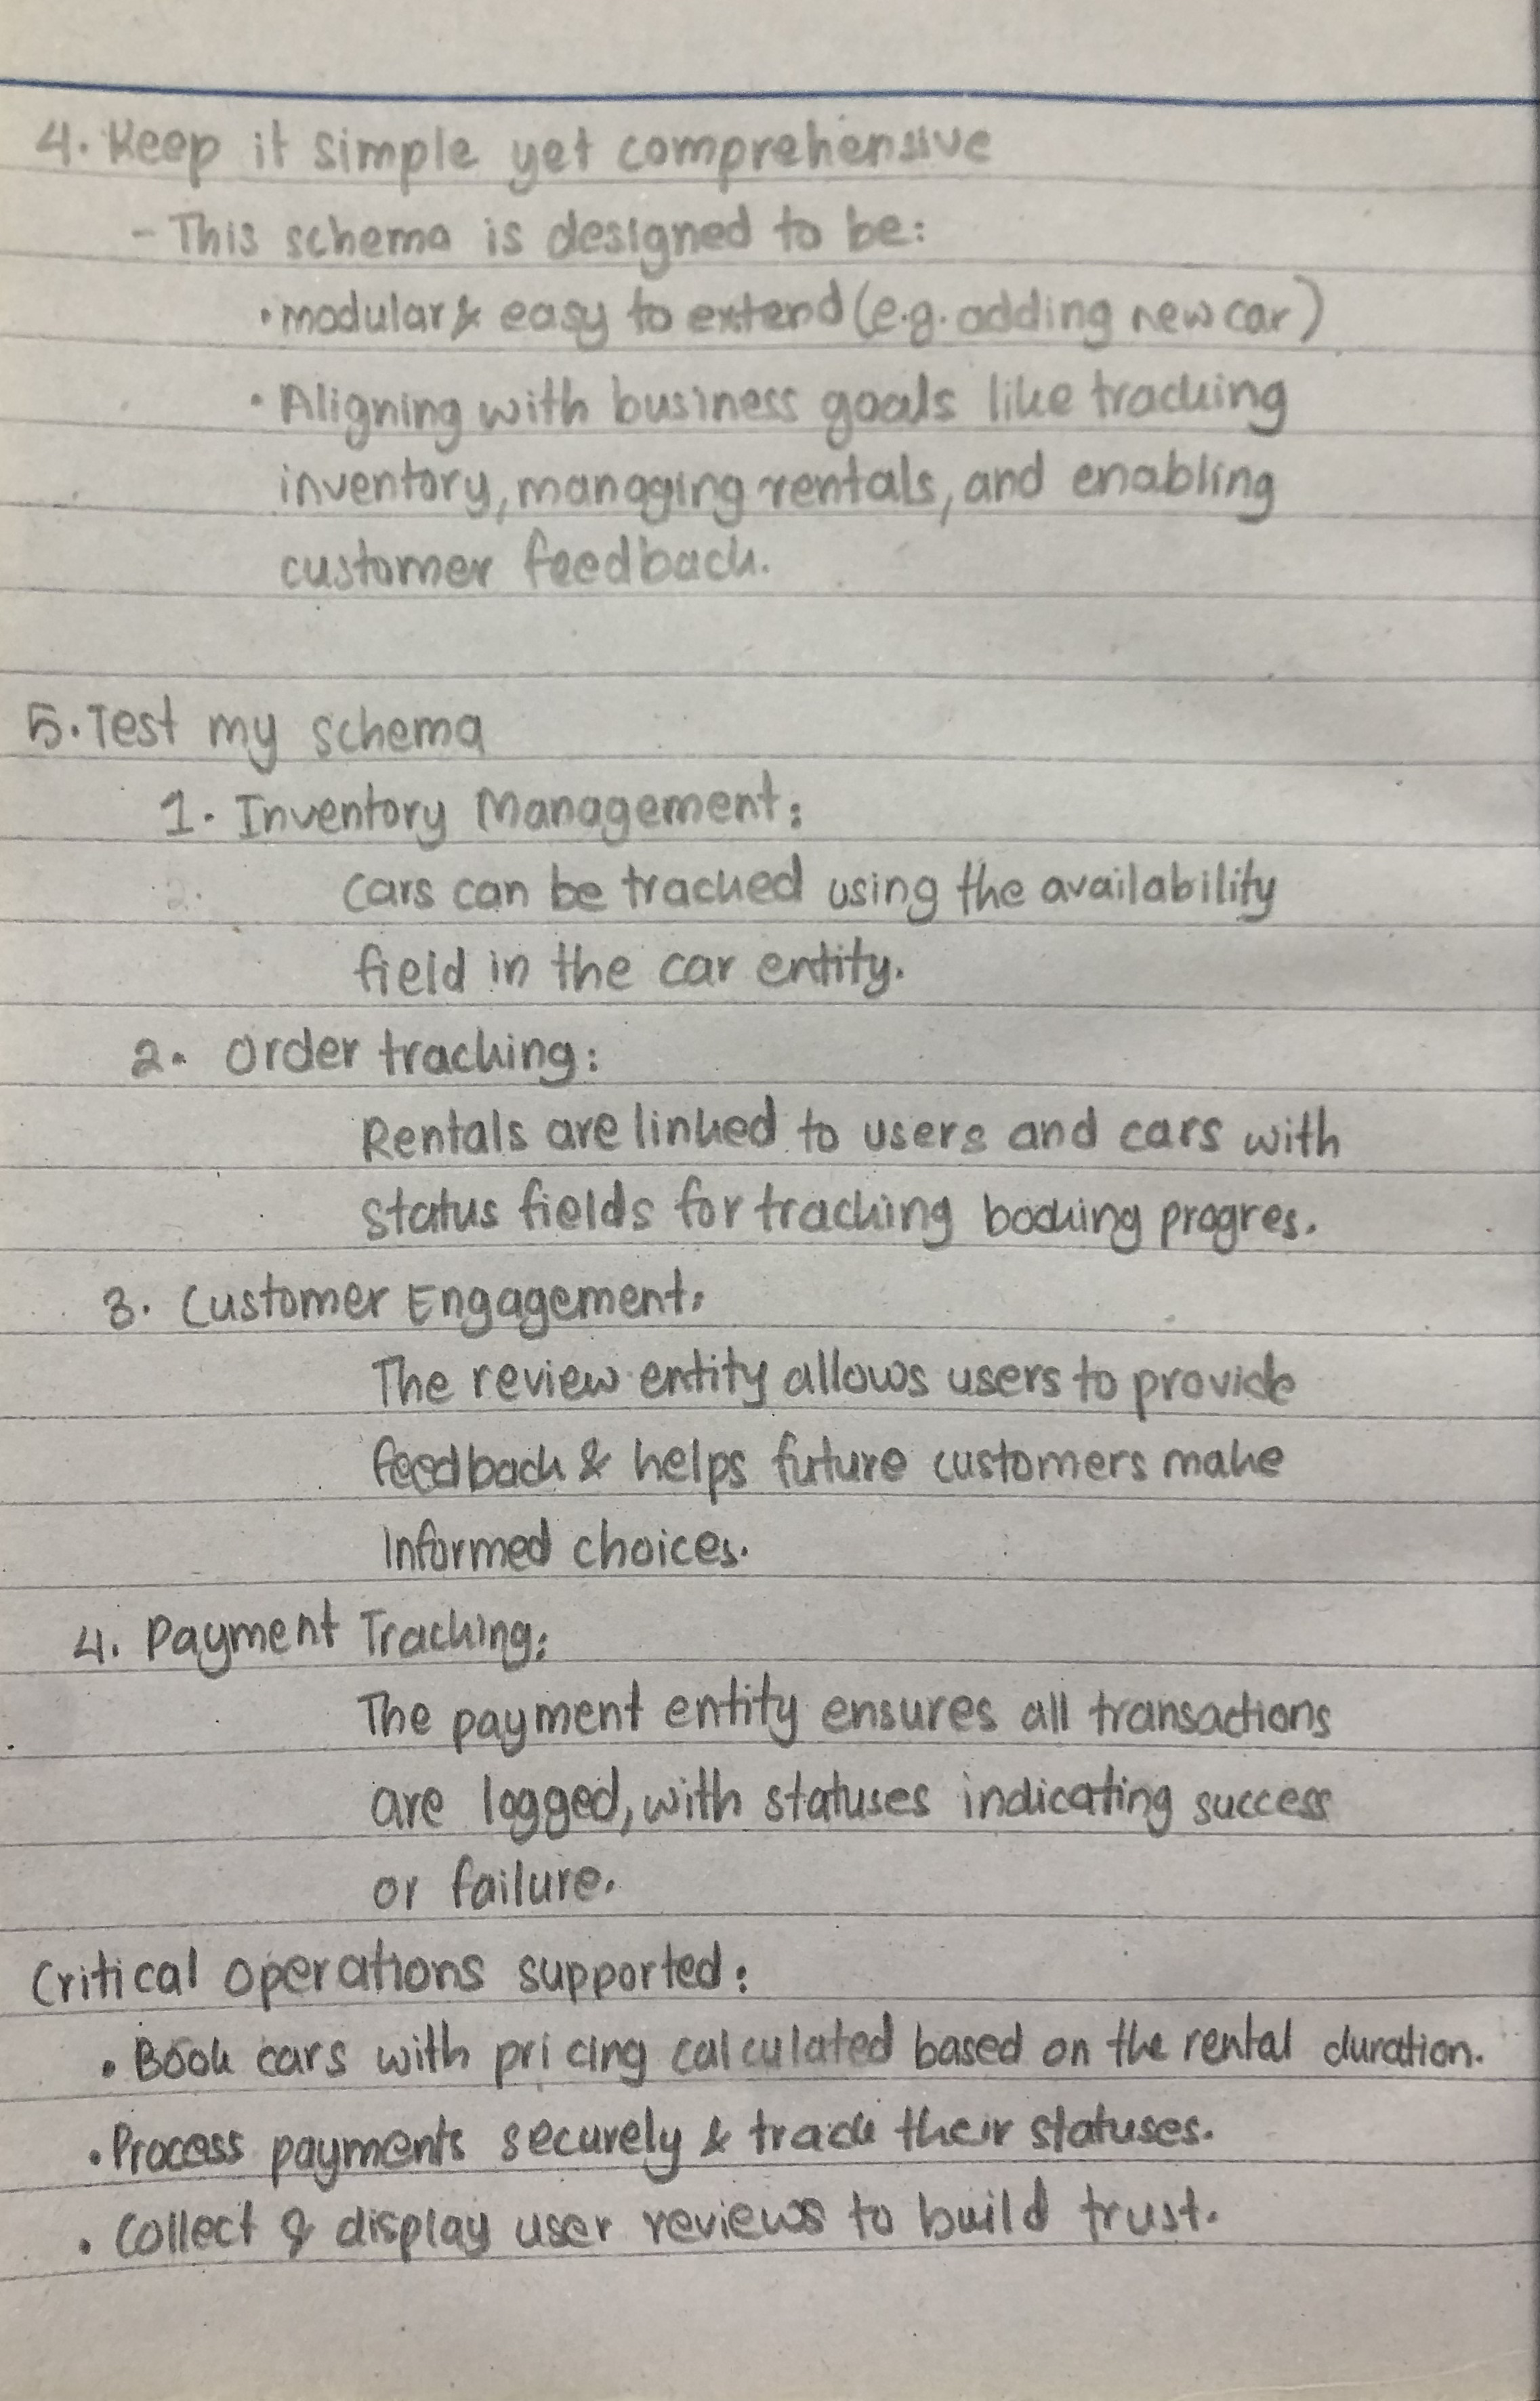 4. Keep it simple yet comprehensive
- This schema is designed to be:
• modular & easy to extend (e.g. adding new car)
• Aligning with business goals like tracking
inventory, managging rentals, and enabling
customer feedback.
5. Test my schema
1. Inventory Management:
2.
Cars can be tracked using the availability
field in the car entity.
2. Order tracking:
Rentals are linked to users and cars with
status fields for tracking booking progres.
3. Customer Engagement:
The review entity allows users to provide
feedback & helps future customers make
Informed choices.
4. Payment Tracking:
The payment entity ensures all transactions
are logged, with statuses indicating success
or failure.
Critical operations supported:
• Book cars with pricing calculated based on the rental duration.
• Process payments securely & track their statuses.
• Collect & display user reviews to build trust.